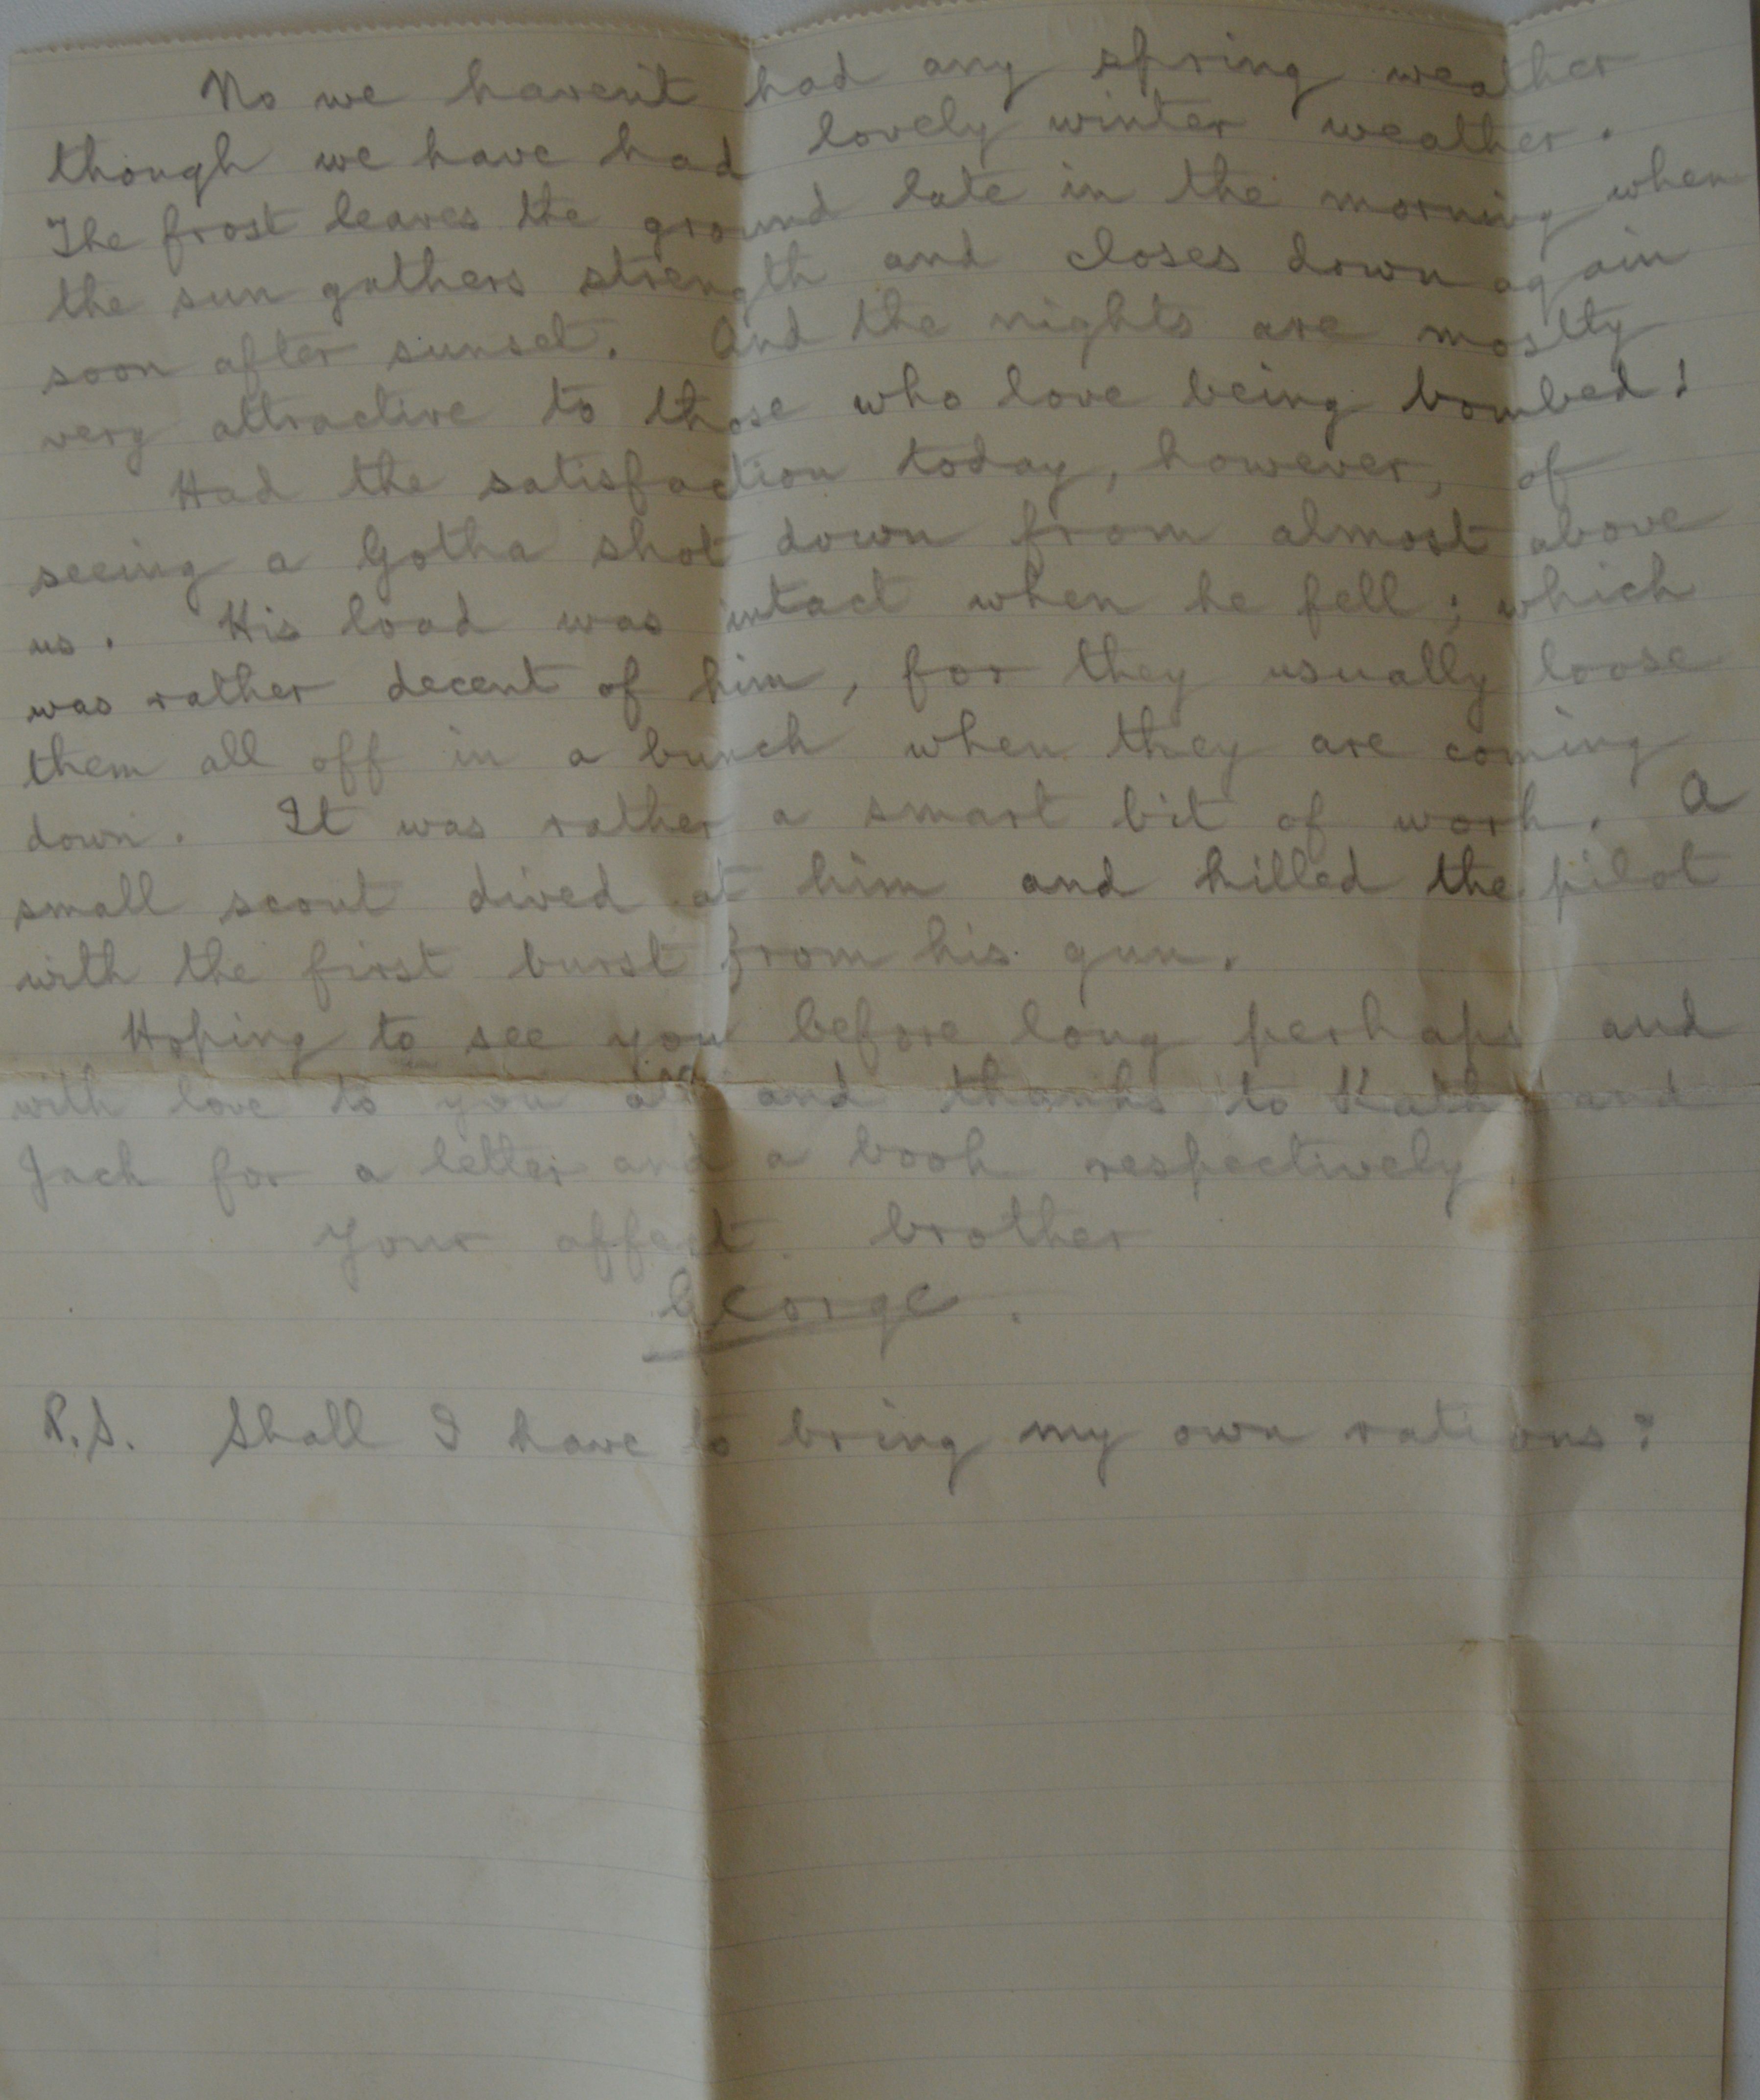 No we haven't had any spring weather
though we have had lovely winter weather.
The frost leaves the ground late in the morning when
the sun gathers strength and closes down again
soon after sunset. And the nights are mostly
very attractive to those who love being bombed!
Had the satisfaction today, however, of
seeing a Gotha shot down from almost above
us. His load was intact when he fell; which
was rather decent of him, for they usually loose
them all off in a bunch when they are coming
down. It was rather a smart bit of work. A
small scout dived at him and killed the pilot
with the first burst from his gun.
Hoping to see you before long perhaps and
with love to you all and thanks to Kath and
Jack for a letter and a book respectively
Your affect. brother
George.
P.S. Shall I have to bring my own rations?